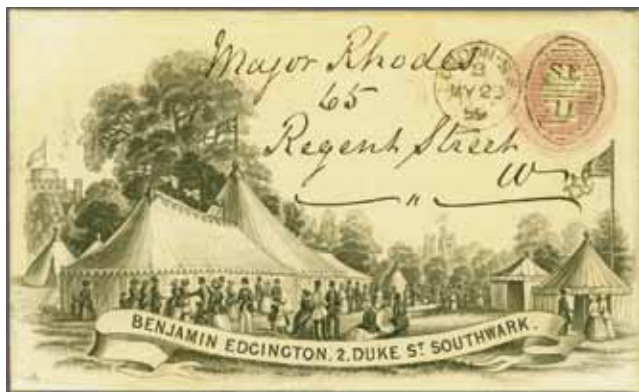 Major Rhodes
65
Regent Street
W
MY 23
S.E
11
BENJAMIN EDGINGTON. 2. DUKE ST SOUTHWARK.